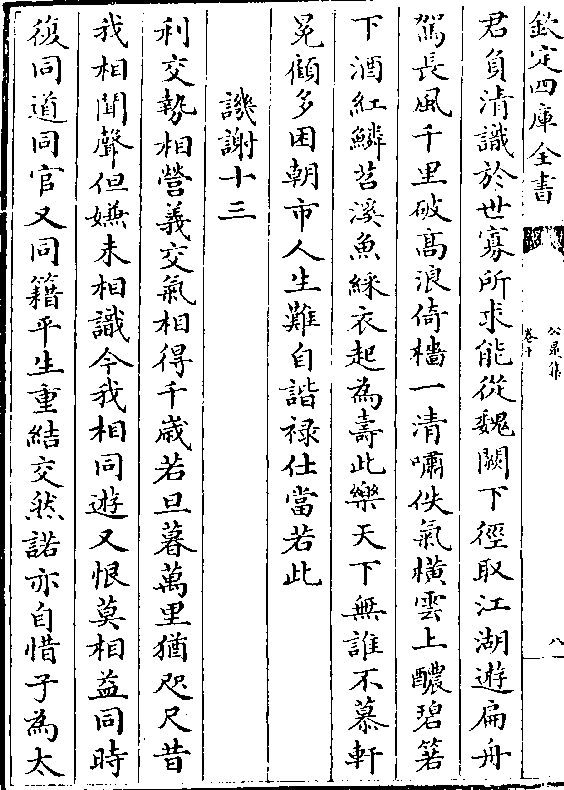 欽定四庫全書
公是集
卷十
八
君負清識於世寡所求能從魏闕下徑取江湖遊扁舟
駕長風千里破高浪倚檣一清嘯佚氣橫雲上醲碧箬
下酒紅鱗苕溪魚綵衣起為壽此樂天下無誰不慕軒
冕傾多困朝市人生難自諧禄仕當若此
譏謝十三
利交勢相營義交氣相得千歳若旦暮萬里猶咫尺昔
我相聞聲但嫌未相識今我相同遊又恨莫相益同時
復同道同官又同籍平生重結交然諾亦自惜子為太